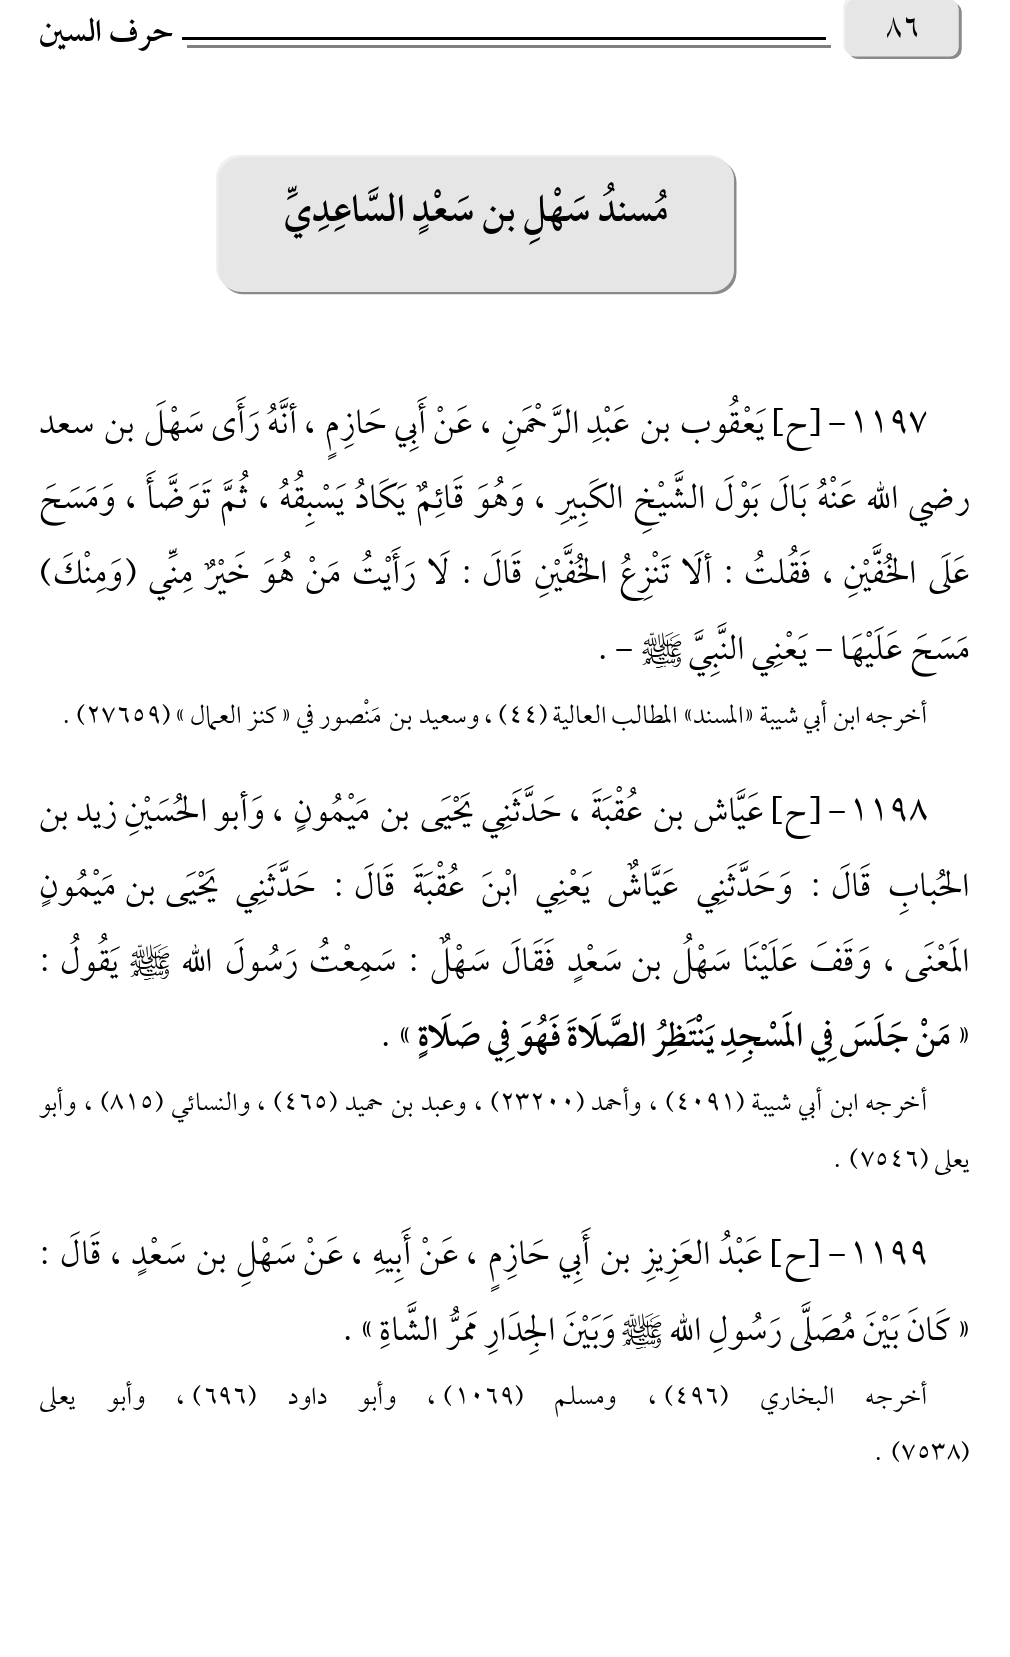 ٨٦
حرف السين
مُسندُ سَهْلِ بن سَعْدٍ السَّاعِدِيِّ
١١٩٧ – [ح] يَعْقُوب بن عَبْدِ الرَّحْمَنِ ، عَنْ أَبِي حَازِمٍ ، أنَّهُ رَأَى سَهْلَ بن سعد
رضي الله عَنْهُ بَالَ بَوْلَ الشَّيْخِ الكَبِيرِ ، وَهُوَ قَائِمٌ يَكَادُ يَسْبِقُهُ ، ثُمَّ تَوَضَّأَ ، وَمَسَحَ
عَلَى الخُفَّيْنِ ، فَقُلتُ : ألَا تَنْزِعُ الخُفَّيْنِ قَالَ : لَا رَأَيْتُ مَنْ هُوَ خَيْرٌ مِنِّي (وَمِنْكَ)
مَسَحَ عَلَيْهَا – يَعْنِي النَّبِيَّ ﷺ – .
أخرجه ابن أبي شيبة «المسند» المطالب العالية (٤٤) ، وسعيد بن مَنْصور في « كنز العمال » (٢٧٦٥٩) .
١١٩٨ – [ح] عَيَّاش بن عُقْبَةَ ، حَدَّثَنِي يَحْيَى بن مَيْمُونٍ ، وَأبو الحُسَيْنِ زيد بن
الحُبابِ قَالَ : وَحَدَّثَنِي عَيَّاشٌ يَعْنِي ابْنَ عُقْبَةَ قَالَ : حَدَّثَنِي يَحْيَى بن مَيْمُونٍ
المَعْنَى ، وَقَفَ عَلَيْنَا سَهْلُ بن سَعْدٍ فَقَالَ سَهْلٌ : سَمِعْتُ رَسُولَ الله ﷺ يَقُولُ :
« مَنْ جَلَسَ فِي المَسْجِدِ يَنْتَظِرُ الصَّلَاةَ فَهُوَ فِي صَلَاةٍ » .
أخرجه ابن أبي شيبة (٤٠٩١) ، وأحمد (٢٣٢٠٠) ، وعبد بن حميد (٤٦٥) ، والنسائي (٨١٥) ، وأبو
يعلى (٧٥٤٦) .
١١٩٩ – [ح] عَبْدُ العَزِيزِ بن أَبِي حَازِمٍ ، عَنْ أَبِيهِ ، عَنْ سَهْلِ بن سَعْدٍ ، قَالَ :
« كَانَ بَيْنَ مُصَلَّى رَسُولِ الله ﷺ وَبَيْنَ الجِدَارِ مَمَرُّ الشَّاةِ » .
أخرجه البخاري (٤٩٦) ، ومسلم (١٠٦٩) ، وأبو داود (٦٩٦) ، وأبو يعلى
(٧٥٣٨) .